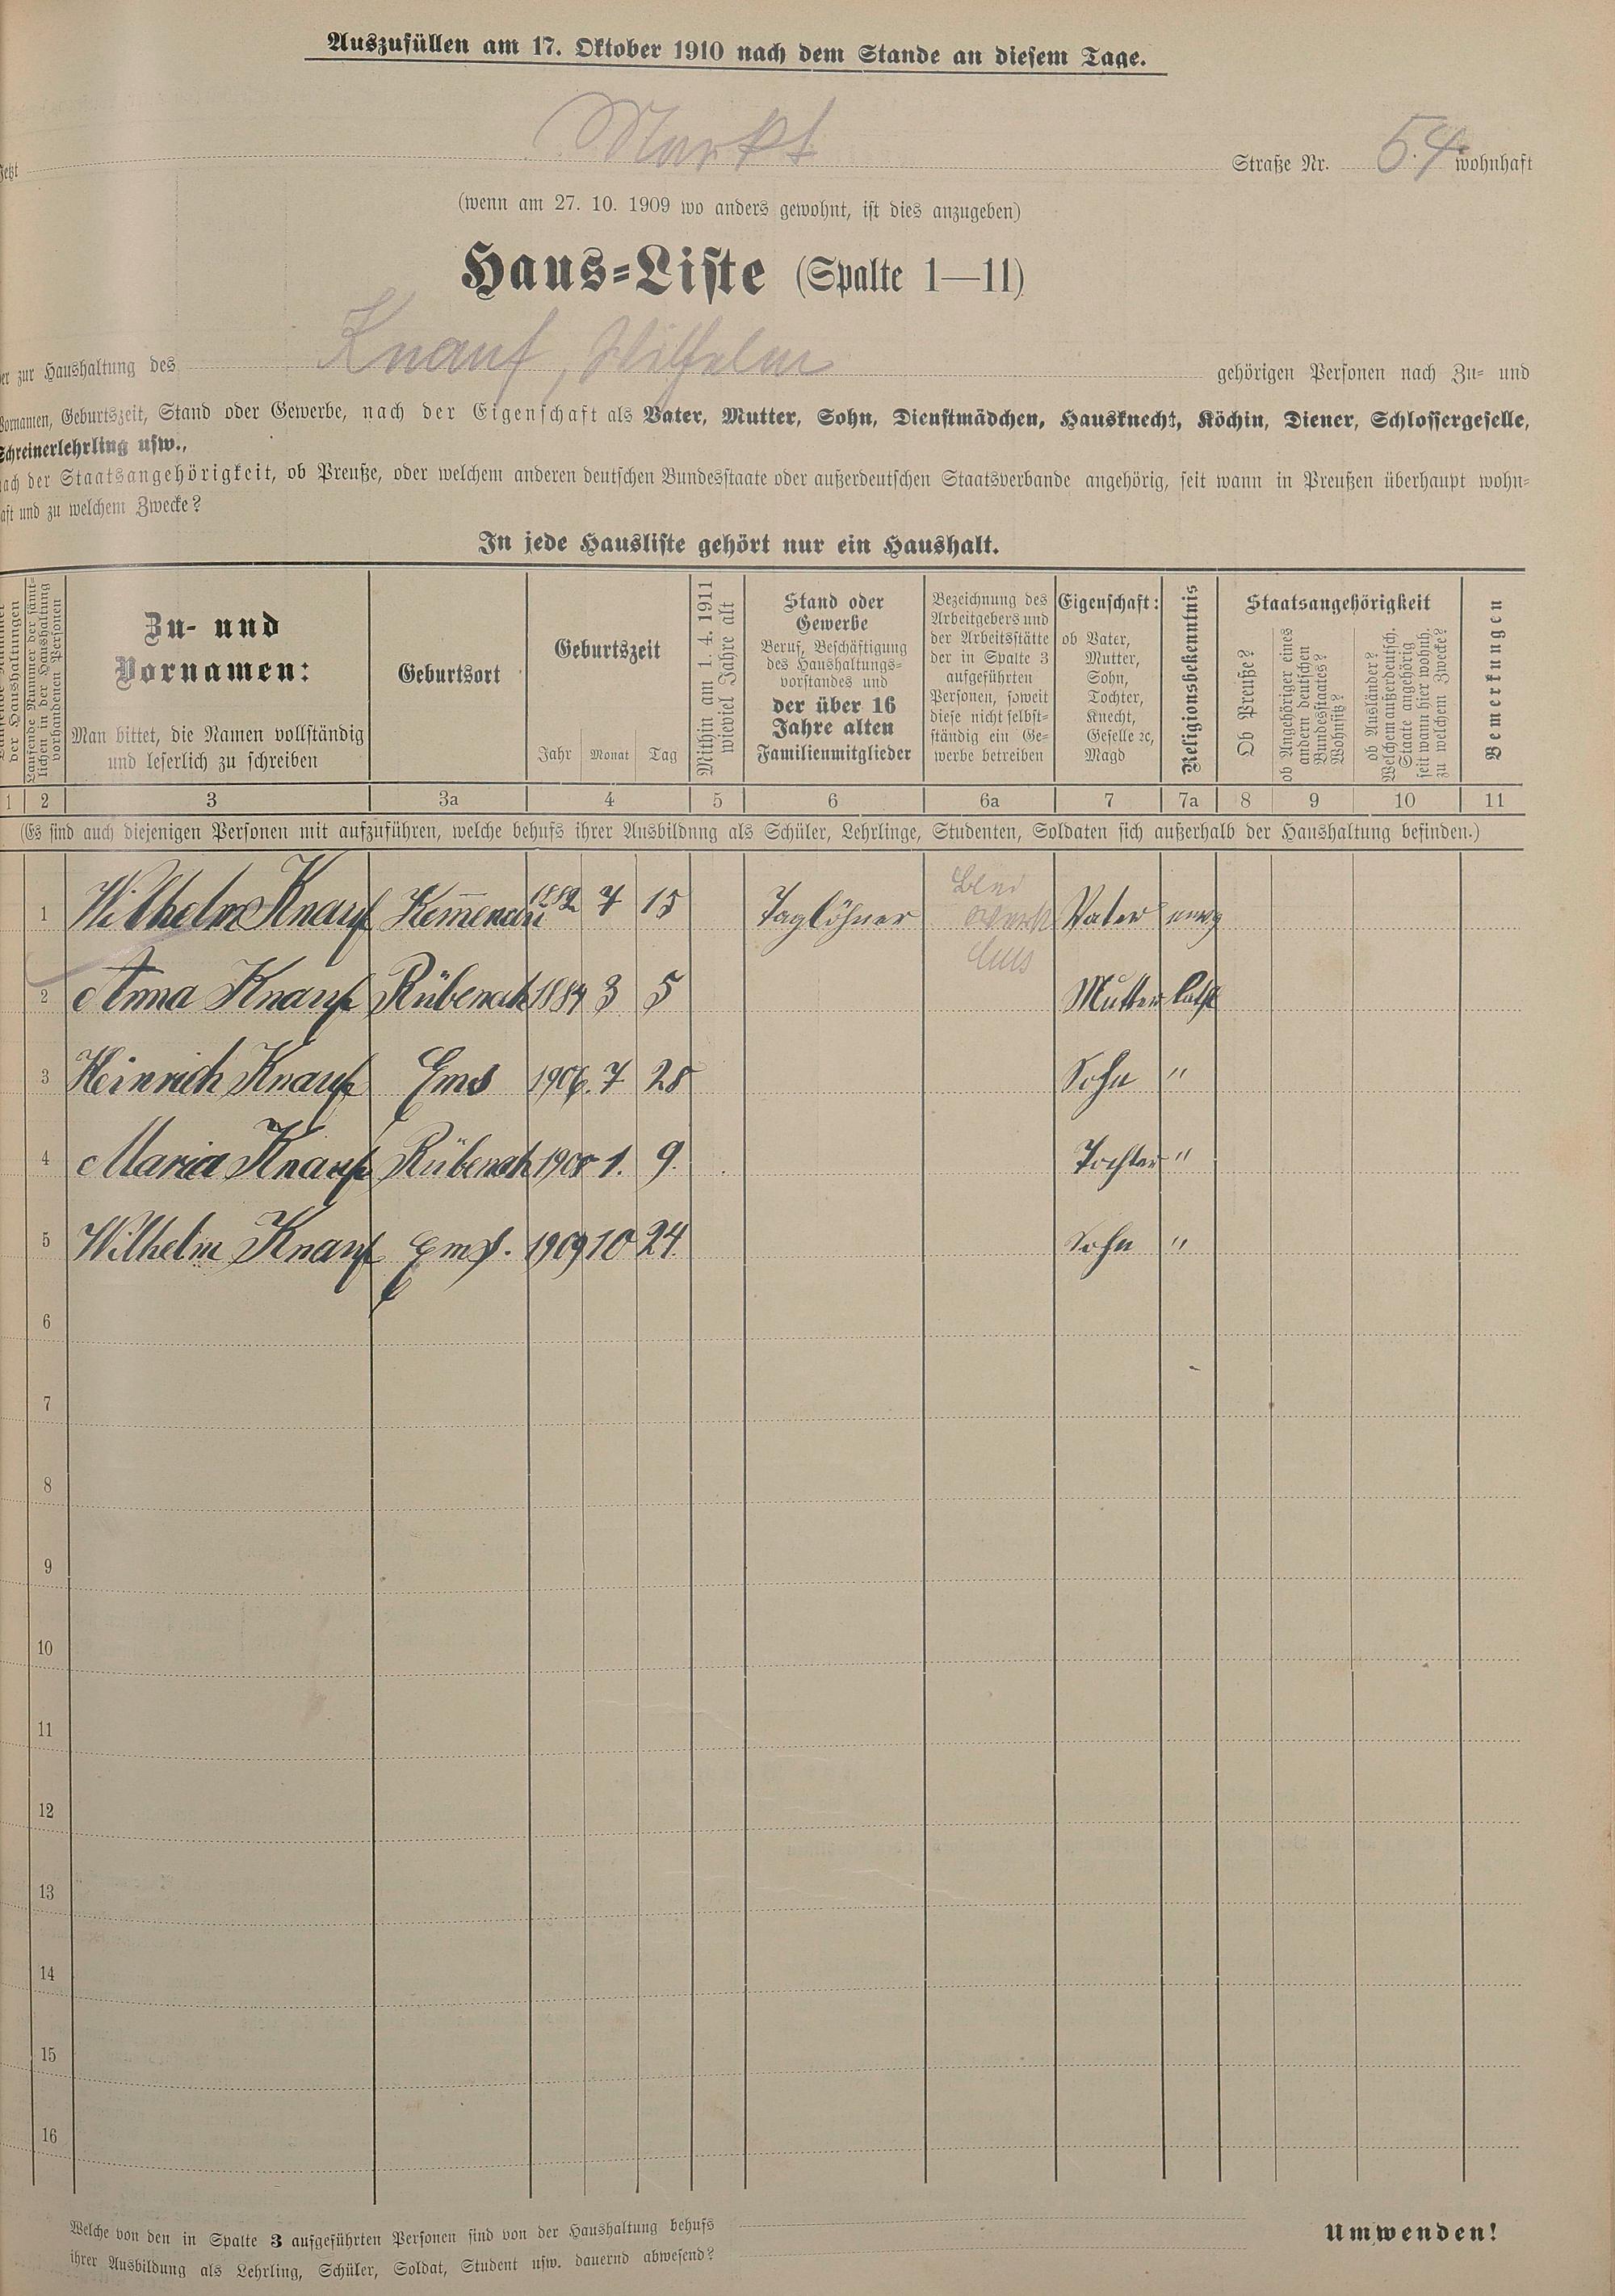 Auszufüllen am 17. Oktober 1910 nach dem Stande an diesem Tage.
Jetzt Markt Straße Nr. 54 wohnhaft
(wenn am 27. 10. 1909 wo anders gewohnt, ist dies anzugeben)
Haus-Liste (Spalte 1—11)
der zur Haushaltung des Knauf, Wilhelm gehörigen Personen nach Zu- und
Vornamen, Geburtszeit, Stand oder Gewerbe, nach der Eigenschaft als Vater, Mutter, Sohn, Dienstmädchen, Hausknecht, Köchin, Diener, Schlossergeselle,
Schreinerlehrling usw.,
nach der Staatsangehörigkeit, ob Preuße, oder welchem anderen deutschen Bundesstaate oder außerdeutschen Staatsverbande angehörig, seit wann in Preußen überhaupt wohn-
haft und zu welchem Zwecke?
In jede Hausliste gehört nur ein Haushalt.
der Haushaltungen
Laufende Nummer der sämt-
lichen in der Haushaltung
vorhandenen Personen
Zu- und
Vornamen:
Man bittet, die Namen vollständig
und leserlich zu schreiben
Geburtsort
Geburtszeit
Jahr Monat Tag
Mithin am 1. 4. 1911
wieviel Jahre alt
Stand oder
Gewerbe
Beruf, Beschäftigung
des Haushaltungs-
vorstandes und
der über 16
Jahre alten
Familienmitglieder
Bezeichnung des
Arbeitgebers und
der Arbeitsstätte
der in Spalte 3
aufgeführten
Personen, soweit
diese nicht selbst-
ständig ein Ge-
werbe betreiben
Eigenschaft:
ob Vater,
Mutter,
Sohn,
Tochter,
Knecht,
Geselle ec,
Magd
Religionsbekenntnis
Staatsangehörigkeit
Ob Preuße?
ob Angehöriger eines
andern deutschen
Bundesstaates?
Wohnsitz?
ob Ausländer?
Welchem außerdeutsch.
Staate angehörig
seit wann hier wohnh.
zu welchem Zwecke?
Bemerkungen
1 2 3 3a 4 5 6 6a 7 7a 8 9 10 11
(Es sind auch diejenigen Personen mit aufzuführen, welche behufs ihrer Ausbildung als Schüler, Lehrlinge, Studenten, Soldaten sich außerhalb der Haushaltung befinden.)
1 Wilhelm Knauf Kem̅enau 1882 7 15 Taglöhner Vater
2 Anna Knauf Rübenach 1884 3 5 Mutter kath
3 Heinrich Knauf Ems 1906. 7 28 Sohn "
4 Maria Knauf Rübenach 1908 1. 9. Tochter "
5 Wilhelm Knauf Ems. 1909 10 24. Sohn "
6
7
8
9
10
11
12
13
14
15
16
Welche von den in Spalte 3 aufgeführten Personen sind von der Haushaltung behufs
ihrer Ausbildung als Lehrling, Schüler, Soldat, Student usw. dauernd abwesend?
Umwenden!